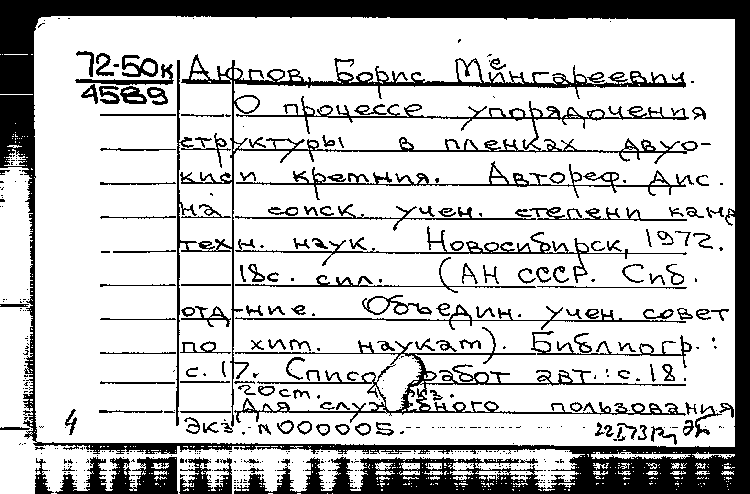 72-50к Аюпов, Борис Менгареевич.
4589 О процессе упорядочения
структуры в пленках двуо-
киси кремния. Автореф. дис.
на соиск. учен. степени канд
техн. наук. Новосибирск, 1972.
18с. с ил. (АН СССР. Сиб.
отд-ние. Объедин. учен. совет
по хим. наукам). Библиогр.:
с. 17. Списо работ авт.: с. 18.
20см. экз.
Для служебного пользования
4 Экз. N000005.